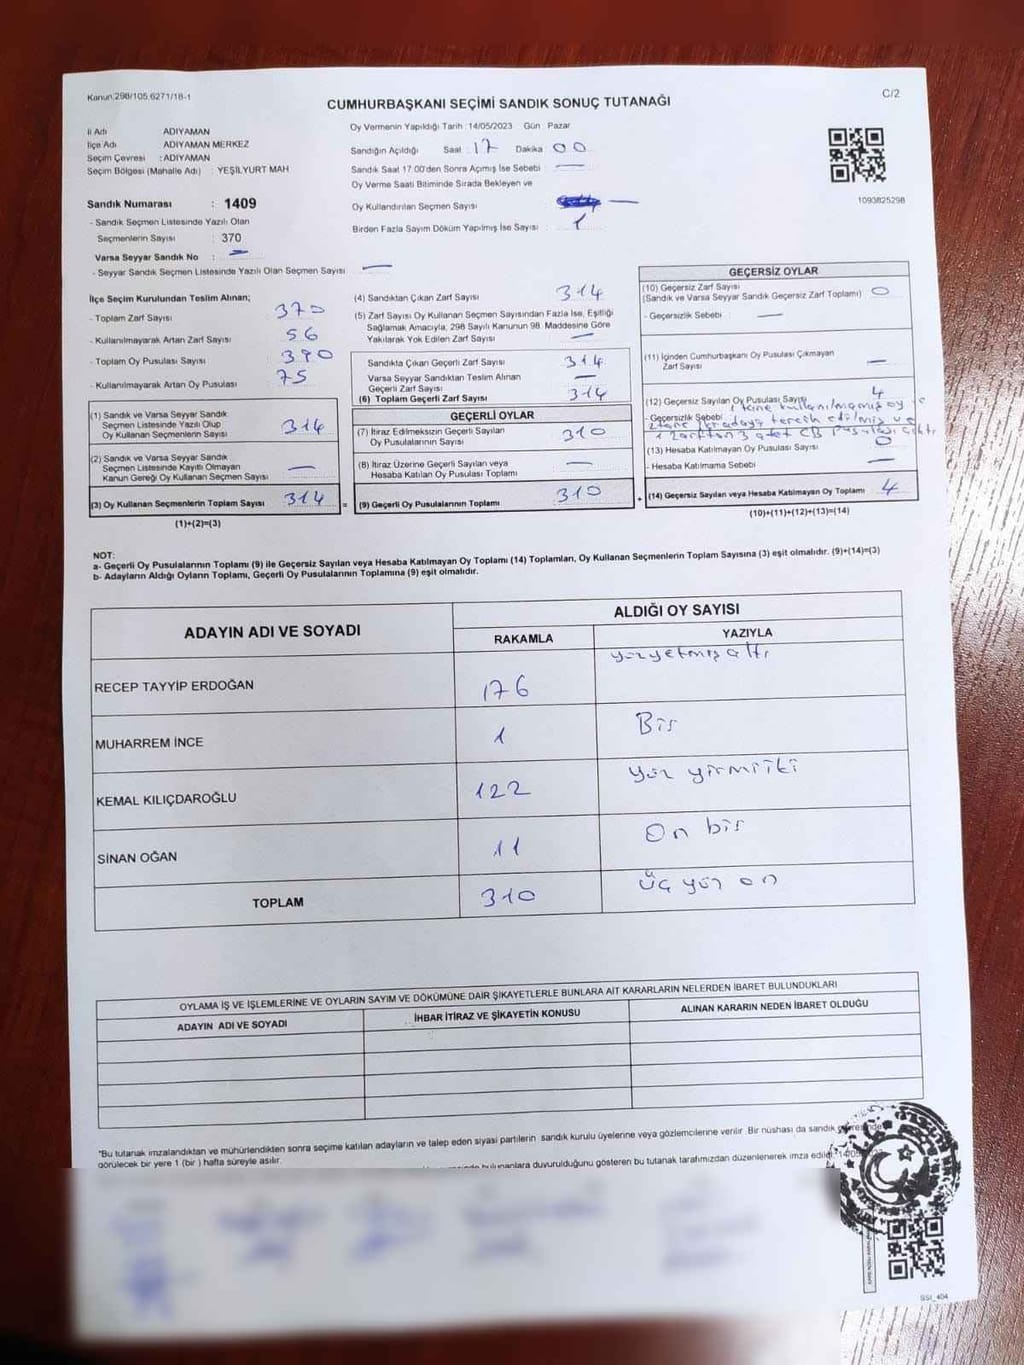 Kanun:298/105,6271/18-1
C/2
CUMHURBAŞKANI SEÇİMİ SANDIK SONUÇ TUTANAĞI
İl Adı ADIYAMAN
İlçe Adı ADIYAMAN MERKEZ
Seçim Çevresi : ADIYAMAN
Seçim Bölgesi (Mahalle Adı) : YEŞİLYURT MAH
Sandık Numarası : 1409
- Sandık Seçmen Listesinde Yazılı Olan
Seçmenlerin Sayısı : 370
Varsa Seyyar Sandık No : —
- Seyyar Sandık Seçmen Listesinde Yazılı Olan Seçmen Sayısı —
Oy Vermenin Yapıldığı Tarih : 14/05/2023 Gün : Pazar
Sandığın Açıldığı Saat : 17 Dakika 00
Sandık Saat 17.00'den Sonra Açımış İse Sebebi : —
Oy Verme Saati Bitiminde Sırada Bekleyen ve
Oy Kullandırılan Seçmen Sayısı —
Birden Fazla Sayım Döküm Yapılmış İse Sayısı : 1
1093825298
İlçe Seçim Kurulundan Teslim Alınan;
- Toplam Zarf Sayısı 370
- Kullanılmayarak Artan Zarf Sayısı : 56
- Toplam Oy Pusulası Sayısı : 390
- Kullanılmayarak Artan Oy Pusulası 75
(1) Sandık ve Varsa Seyyar Sandık
Seçmen Listesinde Yazılı Olup
Oy Kullanan Seçmenlerin Sayısı 314
(2) Sandık ve Varsa Seyyar Sandık
Seçmen Listesinde Kayıtlı Olmayan
Kanun Gereği Oy Kullanan Seçmen Sayısı —
(3) Oy Kullanan Seçmenlerin Toplam Sayısı 314 =
(1)+(2)=(3)
(4) Sandıktan Çıkan Zarf Sayısı 314
(5) Zarf Sayısı Oy Kullanan Seçmen Sayısından Fazla İse, Eşitliği
Sağlamak Amacıyla, 298 Sayılı Kanunun 98. Maddesine Göre
Yakılarak Yok Edilen Zarf Sayısı —
Sandıkta Çıkan Geçerli Zarf Sayısı 314
Varsa Seyyar Sandıktan Teslim Alınan
Geçerli Zarf Sayısı —
(6) Toplam Geçerli Zarf Sayısı 314
GEÇERLİ OYLAR
(7) İtiraz Edilmeksizin Geçerli Sayılan
Oy Pusulalarının Sayısı 310
(8) İtiraz Üzerine Geçerli Sayılan veya
Hesaba Katılan Oy Pusulası Toplamı —
(9) Geçerli Oy Pusulalarının Toplamı 310 +
GEÇERSİZ OYLAR
(10) Geçersiz Zarf Sayısı
(Sandık ve Varsa Seyyar Sandık Geçersiz Zarf Toplamı) 0
- Geçersizlik Sebebi : —
(11) İçinden Cumhurbaşkanı Oy Pusulası Çıkmayan
Zarf Sayısı —
(12) Geçersiz Sayılan Oy Pusulası Sayısı 4
- Geçersizlik Sebebi 1 tane kullanılmamış oy
2 tane adayı tercih edilmiş ve
1 zarftan 3 adet CB Pusulası çıktı
(13) Hesaba Katılmayan Oy Pusulası Sayısı 0
- Hesaba Katılmama Sebebi —
(14) Geçersiz Sayılan veya Hesaba Katılmayan Oy Toplamı 4
(10)+(11)+(12)+(13)=(14)
NOT:
a- Geçerli Oy Pusulalarının Toplamı (9) ile Geçersiz Sayılan veya Hesaba Katılmayan Oy Toplamı (14) Toplamları, Oy Kullanan Seçmenlerin Toplam Sayısına (3) eşit olmalıdır. (9)+(14)=(3)
b- Adayların Aldığı Oyların Toplamı, Geçerli Oy Pusulalarının Toplamına (9) eşit olmalıdır.
ADAYIN ADI VE SOYADI
ALDIĞI OY SAYISI
RAKAMLA YAZIYLA
RECEP TAYYİP ERDOĞAN 176 yüzyetmişaltı
MUHARREM İNCE 1 Bir
KEMAL KILIÇDAROĞLU 122 yüz yirmiiki
SİNAN OĞAN 11 On bir
TOPLAM 310 üç yüz on
OYLAMA İŞ VE İŞLEMLERİNE VE OYLARIN SAYIM VE DÖKÜMÜNE DAİR ŞİKAYETLERLE BUNLARA AİT KARARLARIN NELERDEN İBARET BULUNDUKLARI
ADAYIN ADI VE SOYADI İHBAR İTİRAZ VE ŞİKAYETİN KONUSU ALINAN KARARIN NEDEN İBARET OLDUĞU
"Bu tutanak imzalandıktan ve mühürlendikten sonra seçime katılan adayların ve talep eden siyasi partilerin sandık kurulu üyelerine veya gözlemcilerine verilir. Bir nüshası da sandık
görülecek bir yere 1 (bir) hafta süreyle asılır.
bulunanlara duyurulduğunu gösteren bu tutanak tarafımızdan düzenlenerek imza edildi.
SSI_404